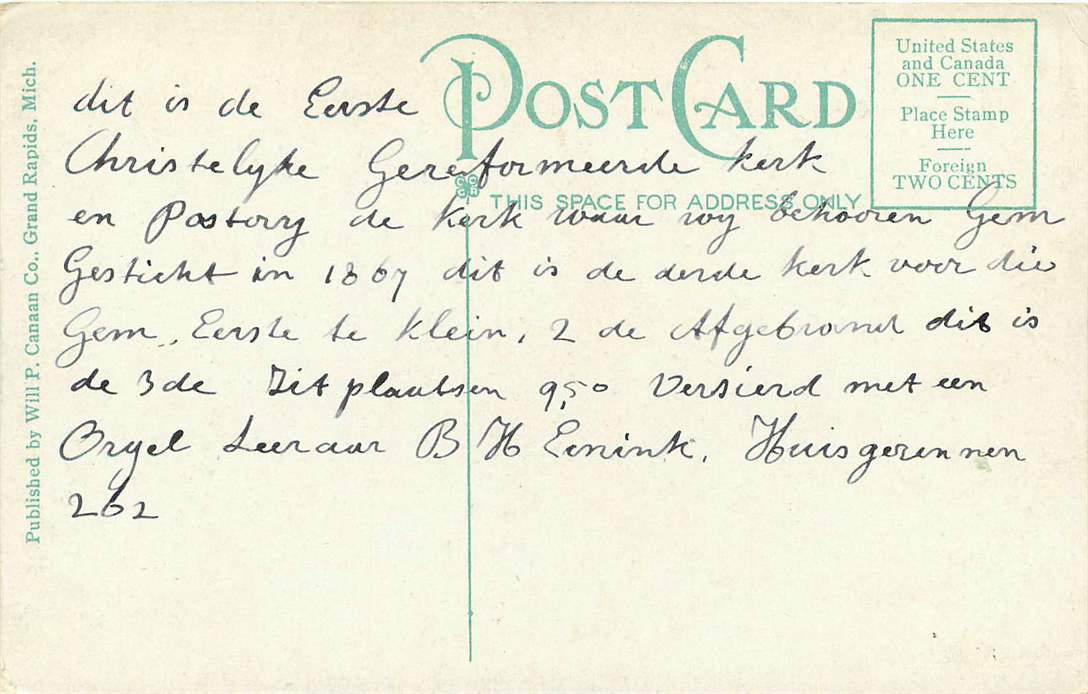 POST CARD
United States
and Canada
ONE CENT
Place Stamp
Here
Foreign
TWO CENTS
THIS SPACE FOR ADDRESS ONLY
Published by Will P. Canaan Co., Grand Rapids, Mich.
dit is de Eerste
Christelyke Gereformeerde kerk
en Pastory de kerk waar wy behooren Gem
Gesticht in 1867 dit is de derde kerk voor die
Gem, Eerste te klein, 2 de Afgebrand dit is
de 3de Zitplaatsen 950 Versierd met een
Orgel Leeraar B H Einink, Huisgezinnen
262